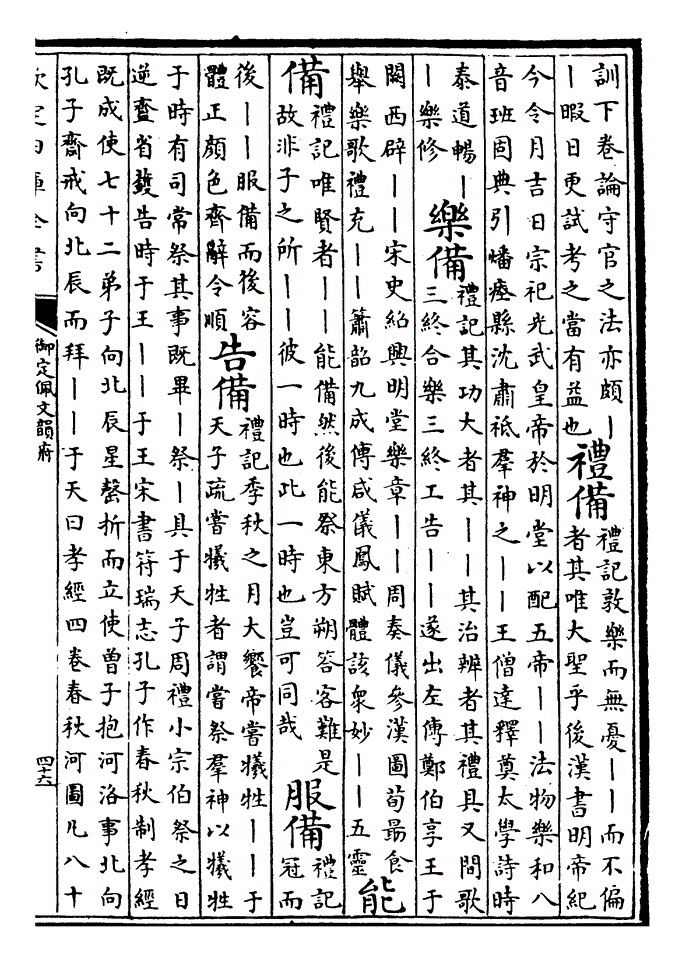 訓下卷論守官之法亦頗｜
｜暇日更試考之當有益也
禮備
禮記敦樂而無憂｜｜而不偏
者其唯大聖乎後漢書明帝紀
今令月吉日宗祀光武皇帝於明堂以配五帝｜｜法物樂和八
音班固典引燔瘞縣沈肅祗羣神之｜｜王僧達釋奠太學詩時
泰道暢｜
｜樂修
樂備
禮記其功大者其｜｜其治辨者其禮具又間歌
三終合樂三終工告｜｜遂出左傳鄭伯享王于
闕西辟｜｜宋史紹興明堂樂章｜｜周奏儀參漢圖荀勗食
舉樂歌禮充｜｜簫韶九成傅咸儀鳳賦體該衆妙｜｜五靈
能
備
禮記唯賢者｜｜能備然後能祭東方朔答客難是
故非子之所｜｜彼一時也此一時也豈可同哉
服備
禮記
冠而
後｜｜服備而後容
體正顏色齊辭令順
告備
禮記季秋之月大饗帝嘗犧牲｜｜于
天子疏嘗犧牲者謂嘗祭羣神以犧牲
于時有司常祭其事既畢｜祭｜具于天子周禮小宗伯祭之日
逆齍省鑊告時于王｜｜于王宋書符瑞志孔子作春秋制孝經
既成使七十二弟子向北辰星罄折而立使曾子抱河洛事北向
孔子齋戒向北辰而拜｜｜于天曰孝經四卷春秋河圖凡八十
欽定四庫全書
御定佩文韻府
四十六